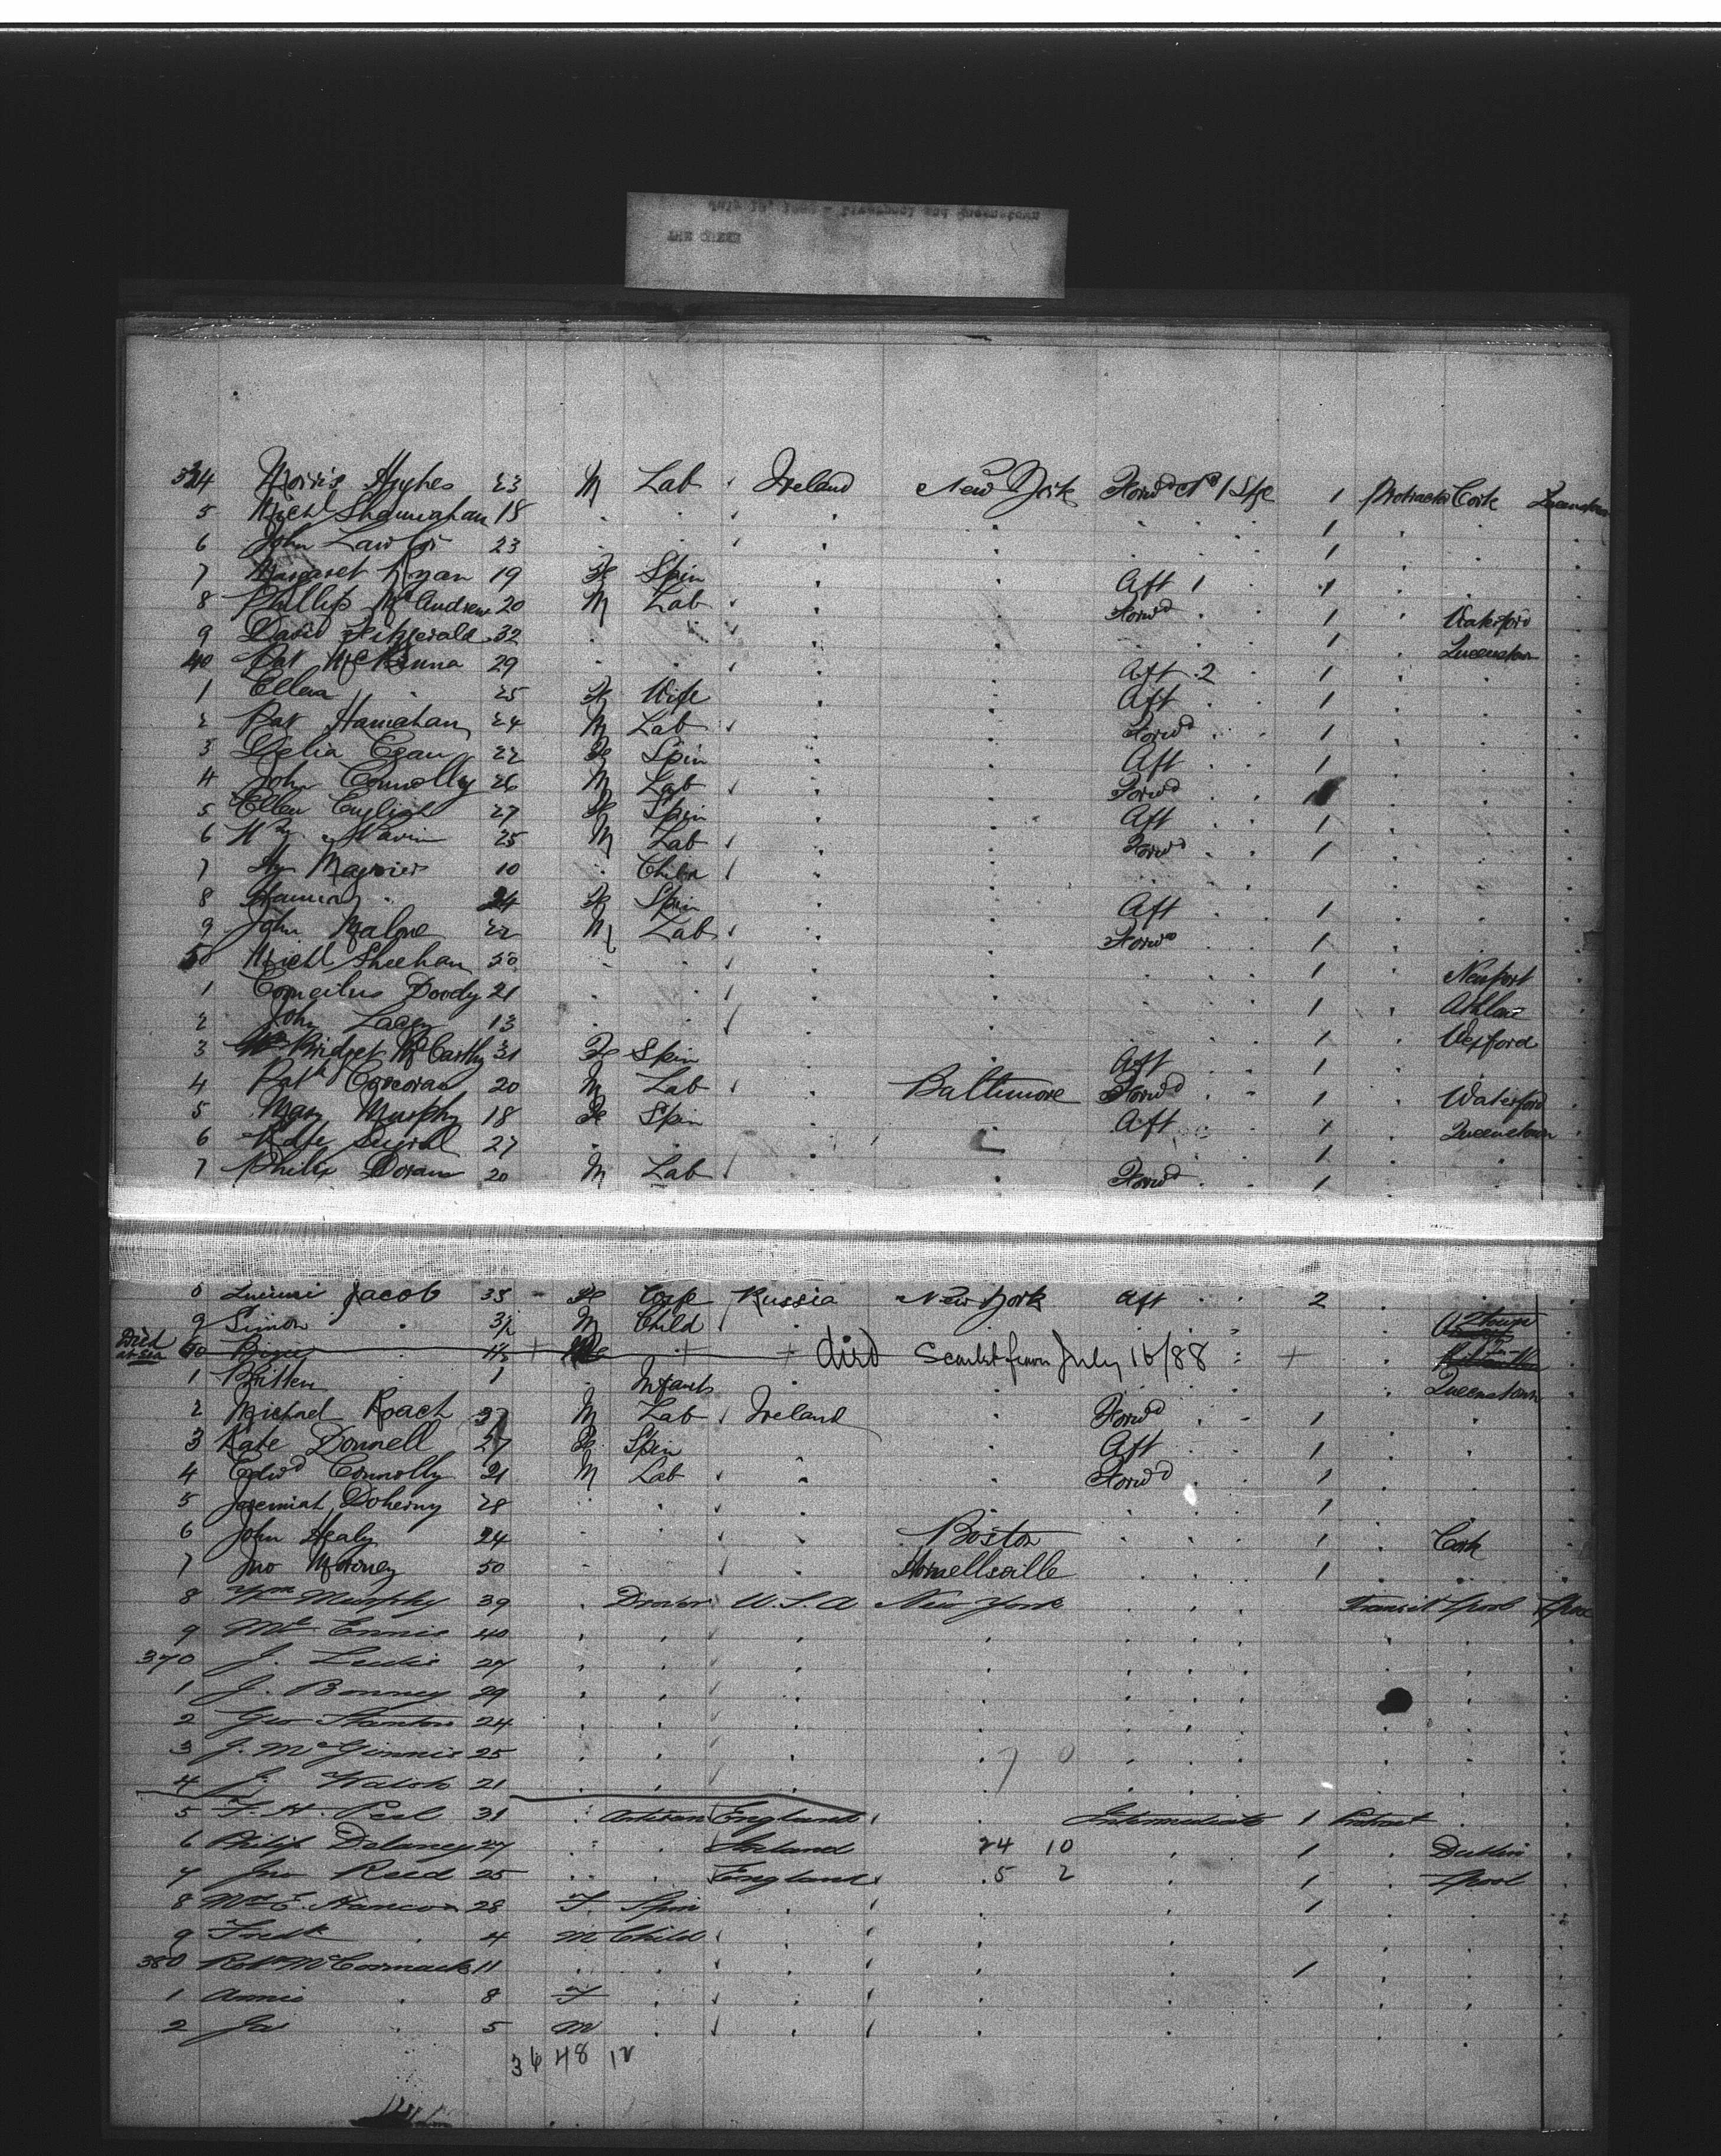 324 Morris Hughes 23 M Lab Ireland New York Forwd No 1 Stge 1 Protracted Cork Queenstown
5 Michl Shannahan 18 1
6 John Lawlor 23 1
7 Margaret Ryan 19 Fe Spin Aft 1 1
8 Phillip McAndrew 20 M Lab Forwd 1 Waterford
9 David Fitzgerald 32 1 Queenstown
40 Pat McKenna 29 Aft 2 1
1 Ellen 25 Fe Wife Aft 1
2 Pat Hanrahan 24 M Lab Forwd 1
3 Delia Egan 22 Fe Spin Aft 1
4 John Connolly 26 M Lab Forwd 1
5 Ellen English 27 Fe Spin Aft 1
6 Wm Navin 25 M Lab Forwd 1
7 Hy Magnier 10 Child
8 Hannah 24 Fe Spin Aft 1
9 John Malone 22 M Lab Forwd 1
50 Michl Sheehan 50 1 Newport
1 Cornelius Doody 21 1 Athlone
2 John Lacey 13 1 Wexford
3 Bridget McCarthy 31 Fe Spin Aft 1
4 Patk Corcoran 20 M Lab Baltimore Forwd 1 Waterford
5 Mary Murphy 18 Fe Spin Aft 1 Queenstown
6 Kate 27 1
7 Philip Doran 20 M Lab Forwd 1
8 Jacob 35 Fe Russia New York Aft 2
9 Simon M Child
Died at sea 60 died Scarlet fever July 16/88
1 Britten 1 Infants Queenstown
2 Michael Roach 37 M Lab Ireland Forwd 1
3 Kate Donnell 27 Fe Spin Aft 1
4 Edwd Connolly 21 M Lab Forwd 1
5 Jeremiah Doherny 28 1
6 John Healy 24 Boston 1 Cork
7 Jno Moroney 50 Hornellsville 1
8 Wm Murphy 39 Drover U.S.A New York Transit Lpool Lpool
9 Ml Ennis 40
370 J. Leslie 27
1 J. Bonney 29
2 Geo Stanton 24
3 J. McGinnis 25 7 0
4 J. Walsh 21
5 T. H. Peel 31 Artisan England Intermediate 1 Protract
6 Philip Delaney 27 Ireland 24 10 1 Dublin
7 Jno Reed 25 England 5 2 1 Lpool
8 Mrs E. Hancox 28 F Spin 1
9 Fredk 4 M Child
380 Robt McCormack 11 1
1 Annie 8 F
2 Jas 5 M
36 48 12